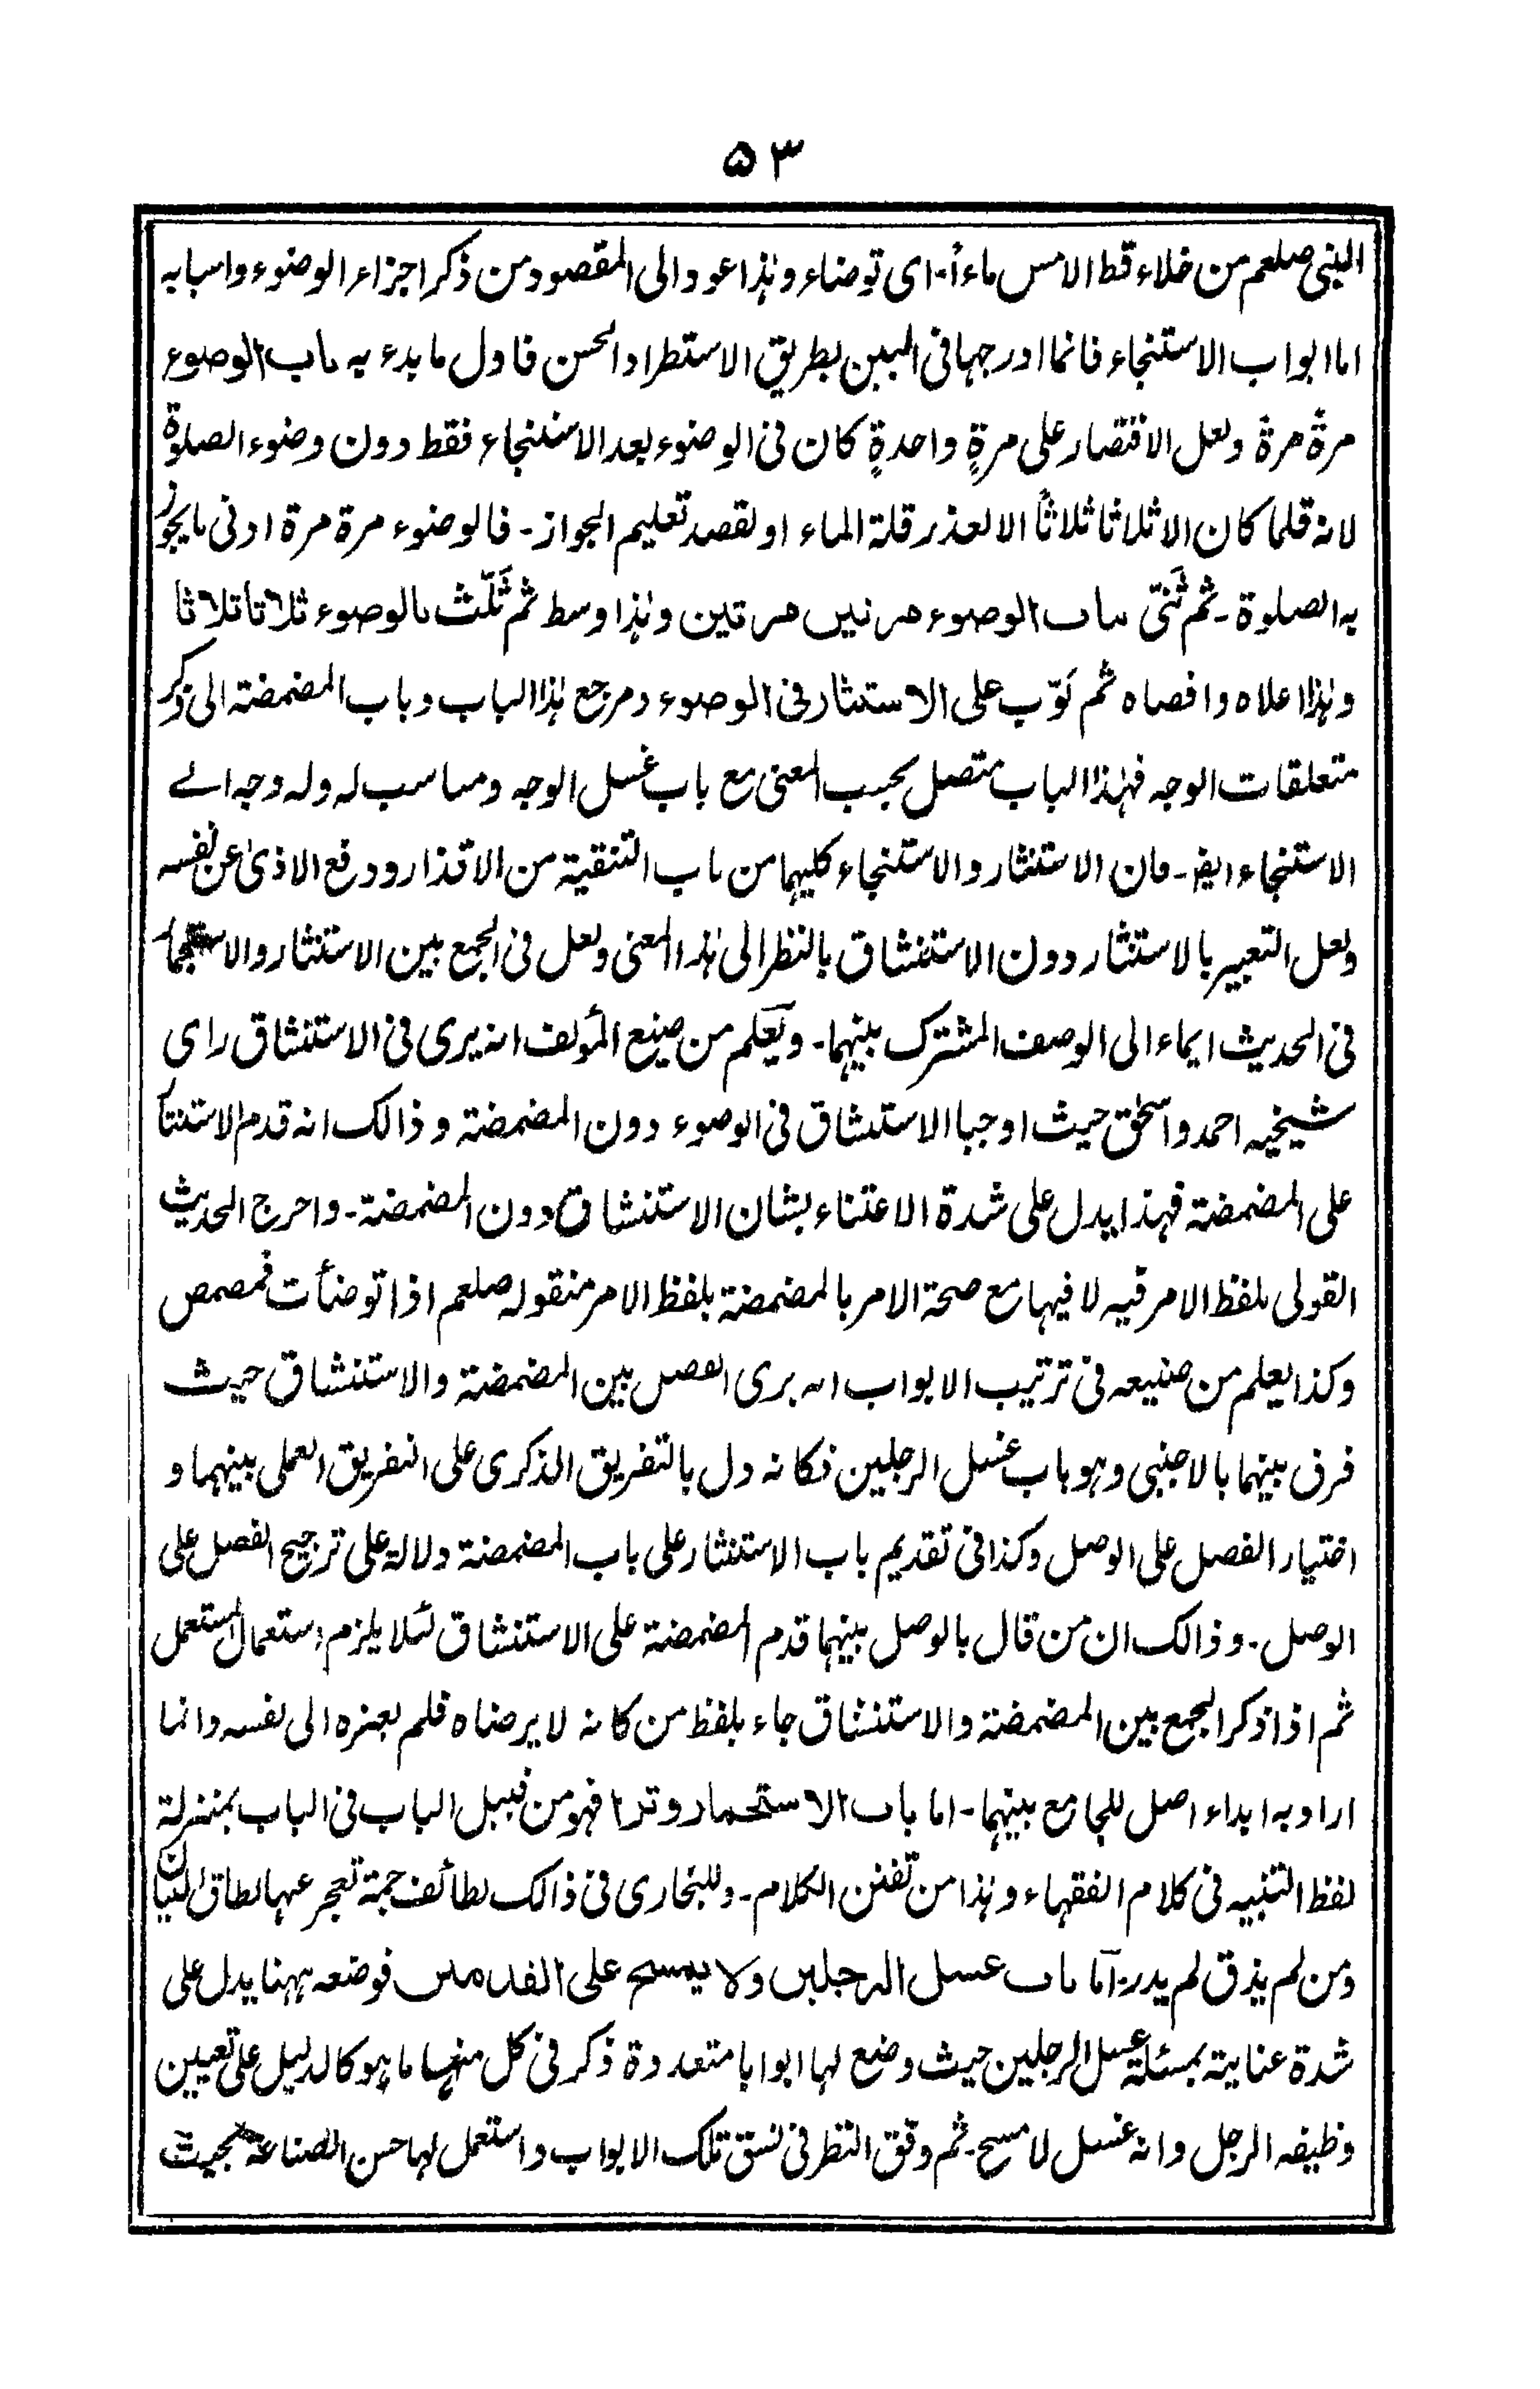 ۵۳
النبی صلعم من خلاء قط الامس ماءً۔ ای توضاء وہٰذا عود الی المقصود من ذکر اجزاء الوضوء واسبابہ
اما ابواب الاستنجاء فانما ادرجہا فی البین بطریق الاستطراد الحسن فاول ما بدء بہ باب الوضوء
مرۃً مرۃً ولعل الاقتصار علی مرۃٍ واحدۃٍ کان فی الوضوء بعد الاستنجاء فقط دون وضوء الصلوۃ
لانہ قلما کان الا ثلاثا ثلاثاً الا لعذر قلۃ الماء او لقصد تعلیم الجواز۔ فالوضوء مرۃ مرۃ ادنی ما یجوز
بہ الصلوۃ۔ ثم ثَنّی باب الوضوء مرتین مرتین وہٰذا وسط ثم ثَلّث بالوضوء ثلاثا ثلاثا
وہٰذا اعلاہ واقصاہ ثم بَوّب علی الاستنثار فی الوضوء ومرجع ہٰذا الباب وباب المضمضۃ الی ذکر
متعلقات الوجہ فہٰذا الباب متصل بحسب المعنی مع باب غسل الوجہ ومناسب لہ ولہ وجہ الے
الاستنجاء ایضا۔ فان الاستنثار والاستنجاء کلیہما من باب التنقیۃ من الاقذار ودفع الاذیٰ عن نفسہ
ولعل التعبیر بالاستنثار دون الاستنشاق بالنظر الی ہٰذا المعنی ولعل فی الجمع بین الاستنثار والاستجمار
فی الحدیث ایماء الی الوصف المشترک بینہما۔ ویعلم من صنیع المؤلف انہ یری فی الاستنشاق رای
شیخیہ احمد واسحٰق حیث اوجبا الاستنشاق فی الوضوء دون المضمضۃ وذالک انہ قدم الاستنثار
علی المضمضۃ فہذا یدل علی شدۃ الاعتناء بشان الاستنشاق دون المضمضۃ۔ واخرج الحدیث
القولی بلفظ الامر فیہ لا فیہا مع صحۃ الامر بالمضمضۃ بلفظ الامر منقولہ صلعم اذا توضأت فمضمض
وکذا یعلم من صنیعہ فی ترتیب الابواب انہ یری الفصل بین المضمضۃ والاستنشاق حیث
فرق بینہما بالاجنبی وہو باب غسل الرجلین فکانہ دل بالتفریق الذکری علی التفریق العملی بینہما و
اختیار الفصل علی الوصل وکذا فی تقدیم باب الاستنثار علی باب المضمضۃ دلالۃ علی ترجیح الفصل علی
الوصل۔ وذالک ان من قال بالوصل بینہما قدم المضمضۃ علی الاستنشاق لئلا یلزم استعمال المستعمل
ثم اذا ذکر الجمع بین المضمضۃ والاستنشاق جاء بلفظ من کانہ لا یرضاہ فلم یعزہ الی نفسہ وانما
ارادبہ ابداء اصل للجامع بینہما۔ اما باب الاستجمار وترا فہو من قبیل الباب فی الباب بمنزلۃ
لفظ التنبیہ فی کلام الفقہاء وہٰذا من تفنن الکلام۔ وللبخاری فی ذالک لطائف جمۃ تعجز عنہا نطاق البیان
ومن لم یذق لم یدر۔ اما باب غسل الرجلین ولا یمسح علی القدمین فوضعہ ہہنا یدل علی
شدۃ عنایۃ بمسئلۃ غسل الرجلین حیث وضع لہا ابوابا متعددۃ ذکر فی کل منہا ما ہو کالدلیل علی تعیین
وظیفہ الرجل وانہ غسل لا مسح۔ ثم وقق النظر فی نسق تلک الابواب واستعمل لہا حسن الصناعۃ بحیث